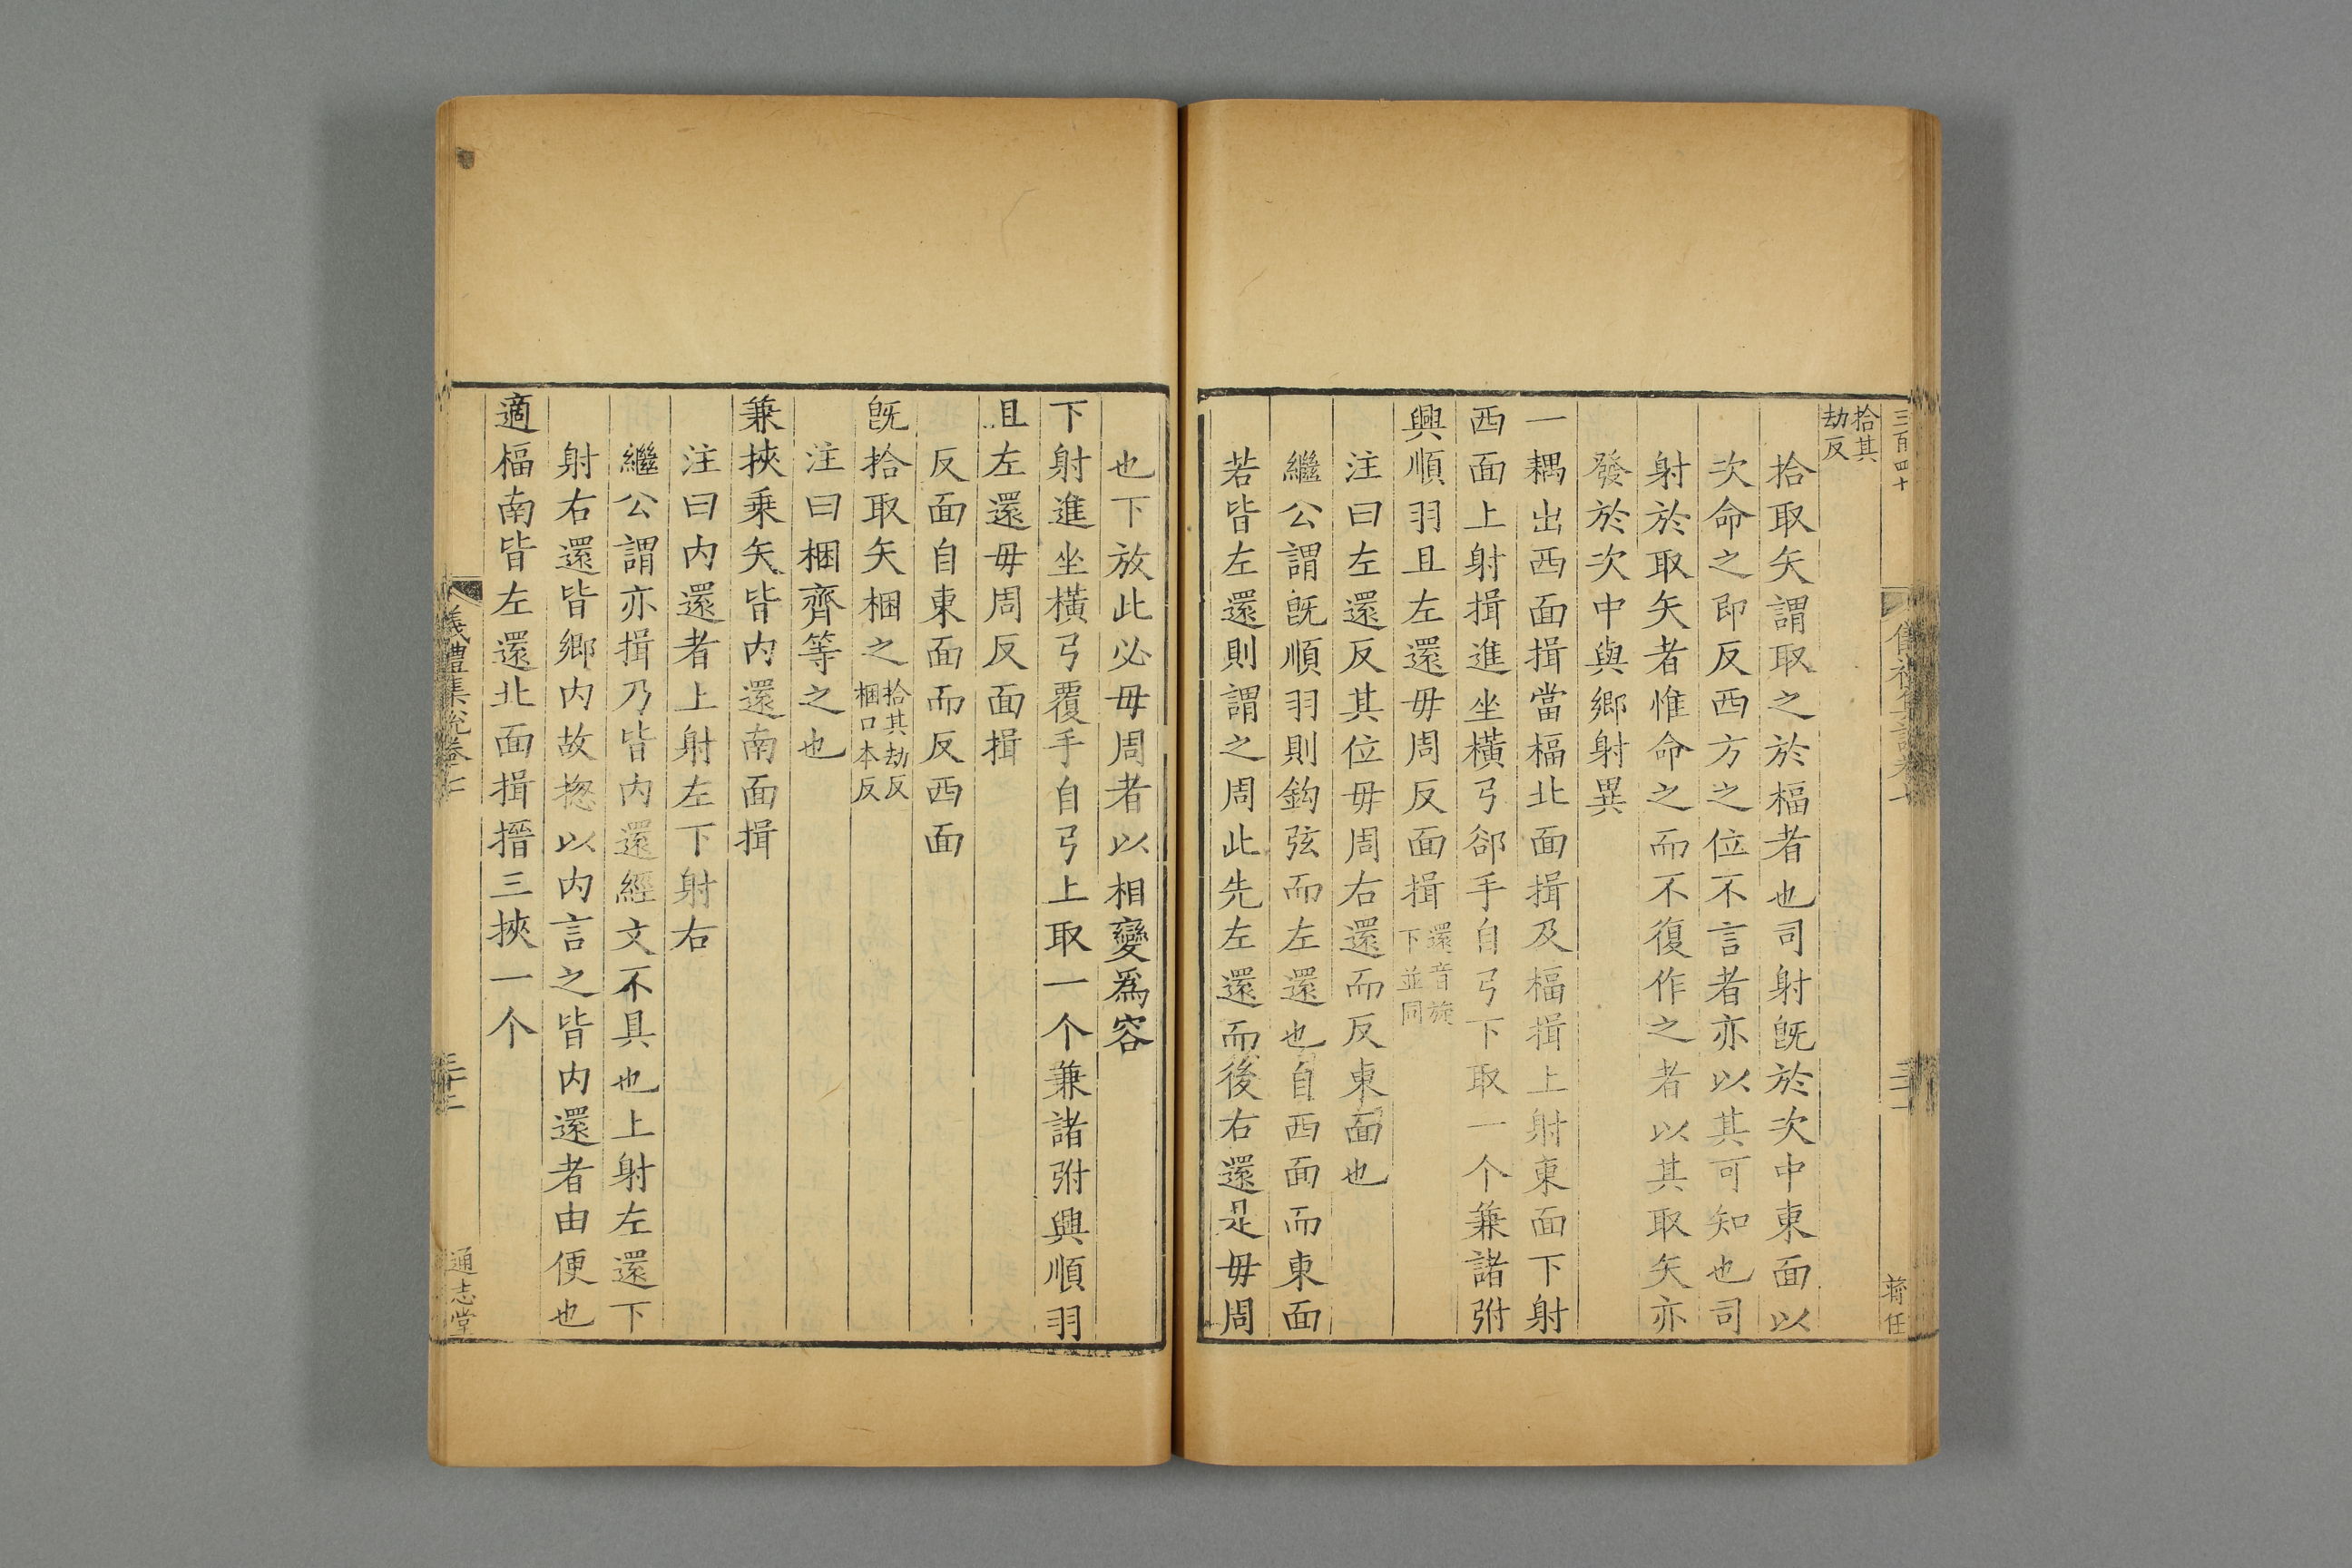 三百四十
蔣任
拾其劫反
拾取矢謂取之於楅者也司射旣於次中東面以
次命之即反西方之位不言者亦以其可知也司
射於取矢者惟命之而不復作之者以其取矢亦
發於次中與鄉射異
一耦出西面揖當楅北面揖及楅揖上射東面下射
西面上射揖進坐橫弓郤手自弓下取一个兼諸弣
興順羽且左還毋周反面揖還音旋下並同
注曰左還反其位毋周右還而反東面也
繼公謂旣順羽則鈎弦而左還也自西面而東面
若皆左還則謂之周此先左還而後右還是毋周
也下放此必毋周者以相變爲容
下射進坐橫弓覆手自弓上取一个兼諸弣興順羽
且左還毋周反面揖
反面自東面而反西面
旣拾取矢梱之拾其劫反梱口本反
注曰梱齊等之也
兼挾乗矢皆内還南面揖
注曰内還者上射左下射右
繼公謂亦揖乃皆内還經文不具也上射左還下
射右還皆鄉内故揔以内言之皆内還者由便也
適楅南皆左還北面揖搢三挾一个
儀禮集說卷七
三十二
通志堂